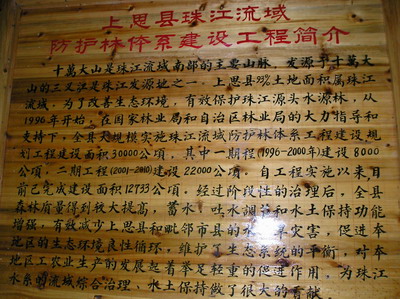 上思县珠江流域
防护林体系建设工程简介
十萬大山是珠江流域南部的主要山脉，发源于十萬大
山的三叉洪是珠江发源地之一，上思县93%土地面积属珠江
流域，为了改善生态环境，有效保护珠江源头水源林，从
1996年开始，在国家林业局和自治区林业局的大力指导和
支持下，全县大规模实施珠江流域防护林体系工程建设规
划工程建设面积30000公顷，其中一期程(1996-2000年)建设8000
公顷，二期工程(2001-2010)建设22000公顷，自工程实施以来目
前已完成建设面积12733公顷，经过阶段性的治理后，全县
森林质量得到较大提高，蓄水、吐水调洪和水土保持功能
增强，有效减少上思县和毗邻市县的水 旱灾害，促进本
地区的生态环境良性循环，维护了生态系统的平衡，对本
地区工农业生产的发展起着举足轻重的促进作用，为珠江
水系 流域综合治理，水土保持做了很大的贡献。